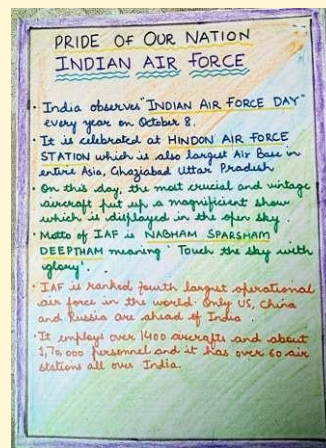 PRIDE OF OUR NATION
INDIAN AIR FORCE
• India observes "INDIAN AIR FORCE DAY"
every year on October 8.
• It is celebrated at HINDON AIR FORCE
STATION which is also largest Air Base in
entire Asia, Ghaziabad Uttar Pradesh
• On this day, the most crucial and vintage
aircraft put up a magnificent show
which is displayed in the open sky.
• Motto of IAF is NABHAM SPARSHAM
DEEPTHAM meaning 'Touch the sky with
glory'.
• IAF is ranked fourth largest operational
air force in the world only US, China
and Russia are ahead of India.
• It employs over 1400 aircrafts and about
1,70,000 personnel and it has over 60 air
stations all over India.